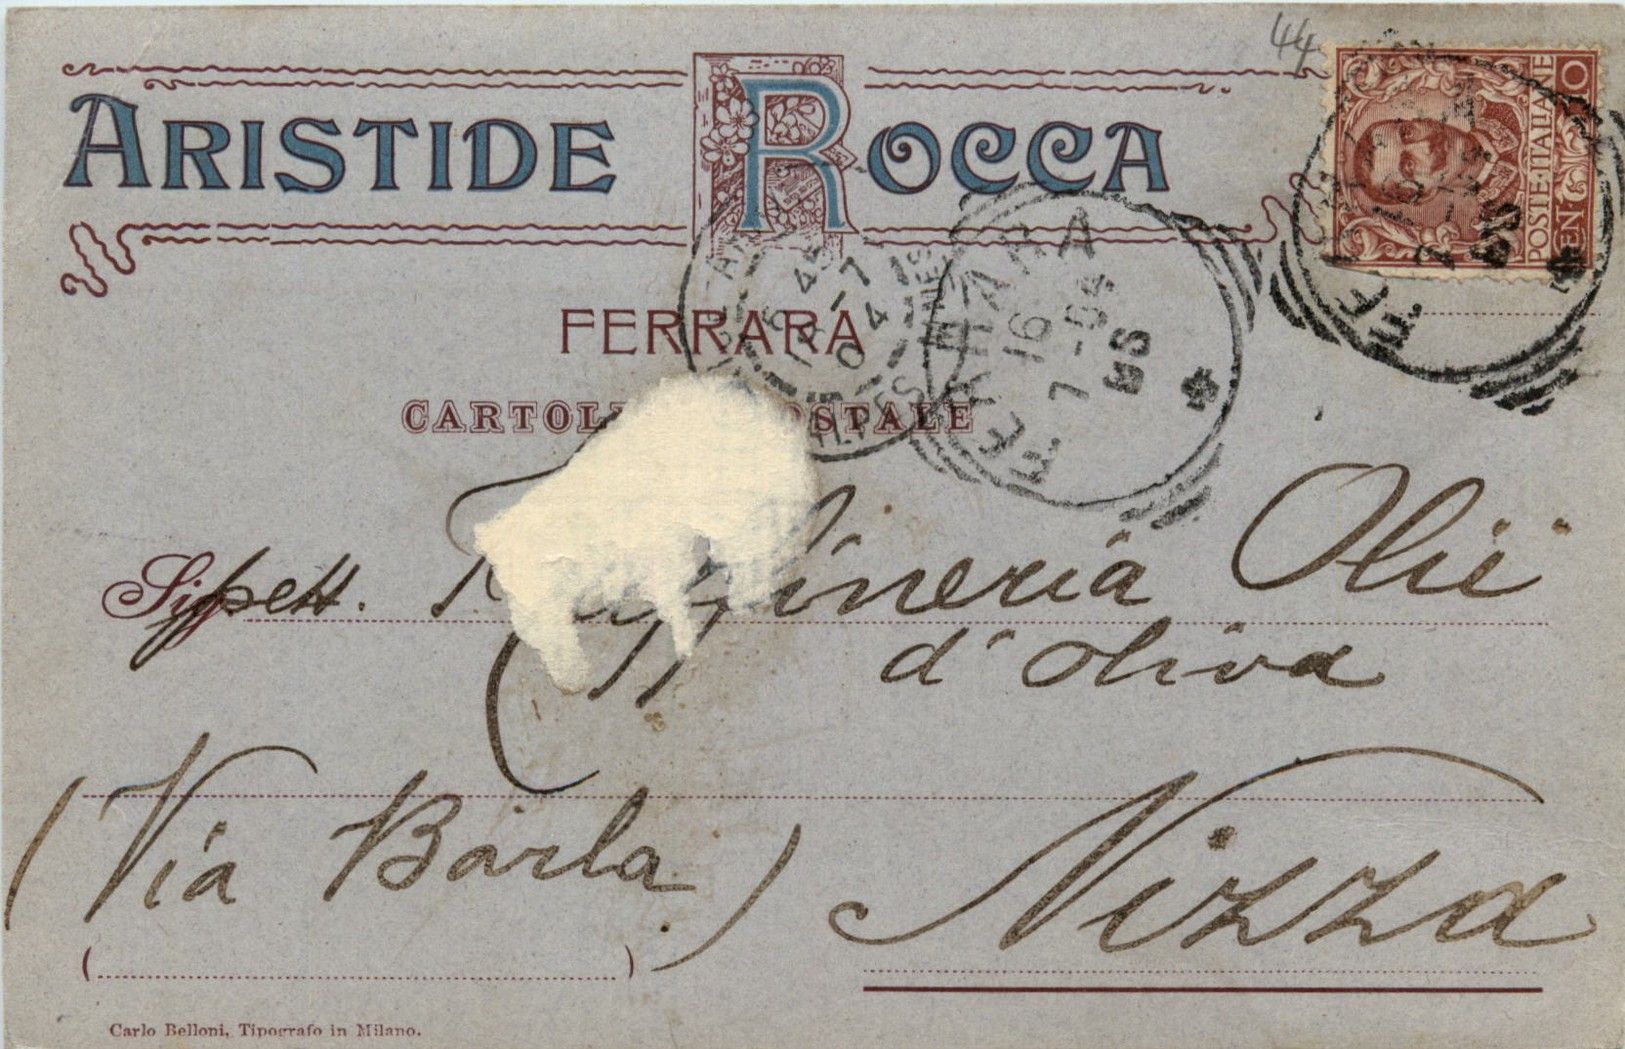 44
ARISTIDE ROCCA
POSTE·ITALIANE
CEN 10
FERRARA
FERRARA
16
7-04
5S
CARTOL OSTALE
Spett. ffineria Olii
d'oliva
(Via Barla)
Nizza
Carlo Belloni, Tipografo in Milano.